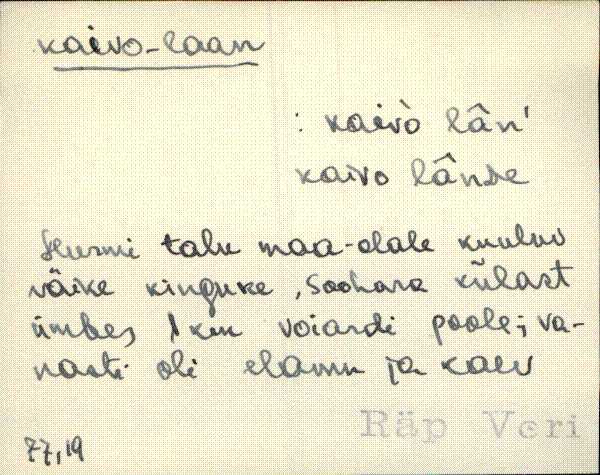 kaivo-laan
: kaivò lân'
kaivo lânde
Hurmi talu maa-alale kuuluv
väike kinguke, Soohara külast
umbes 1 km Voiardi poole; va-
nasti oli elamu ja kaev
Räp Veri
77,19